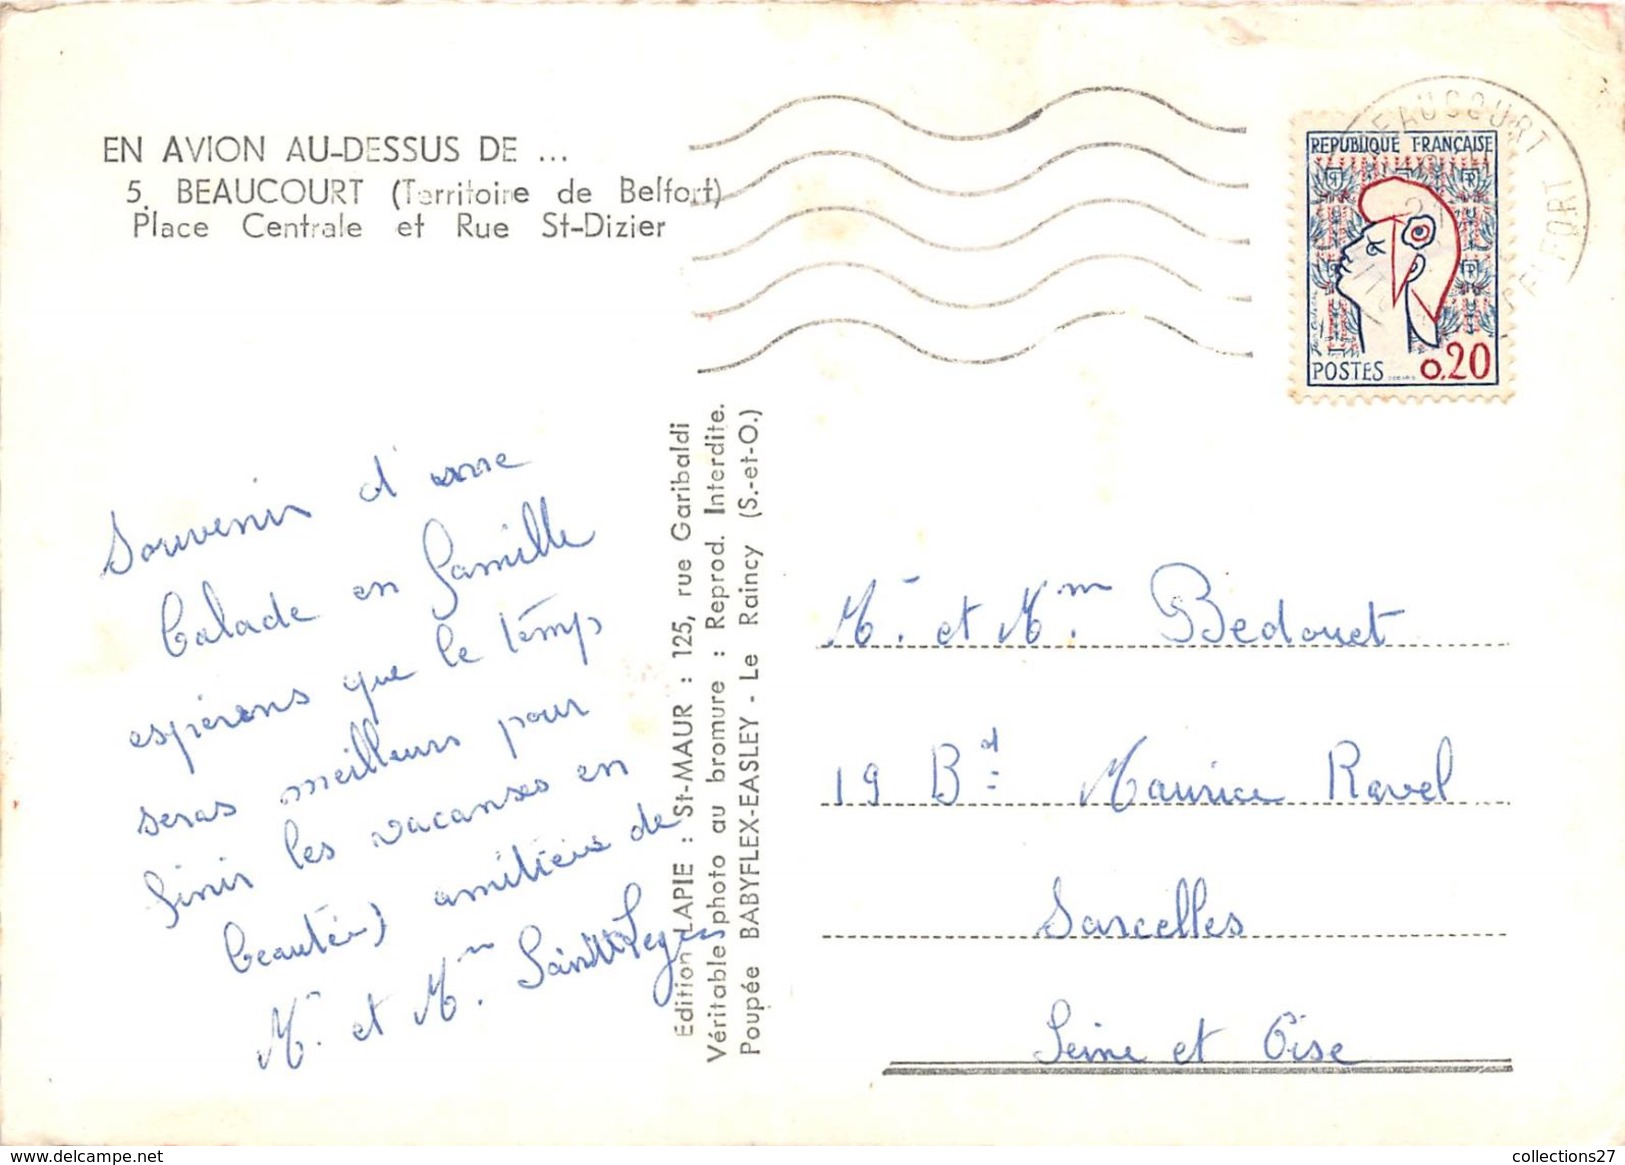 EN AVION AU-DESSUS DE ...
5. BEAUCOURT (Territoire de Belfort)
Place Centrale et Rue St-Dizier
BEAUCOURT
BELFORT
REPUBLIQUE FRANÇAISE
POSTES 0,20
Souvenir d'une
balade en famille
espérons que le temps
seras meilleurs pour
finir les vacanses en
beautée) amitiées de
Mr. et Mm.
Édition LAPIE : St-MAUR : 125, rue Garibaldi
Véritable photo au bromure : Reprod. Interdite.
Poupée BABYFLEX-EASLEY - Le Raincy (S.-et-O.)
Mr. et Mm. Bedouet
19 Bd. Maurice Ravel
Sarcelles
Seine et Oise
collections27